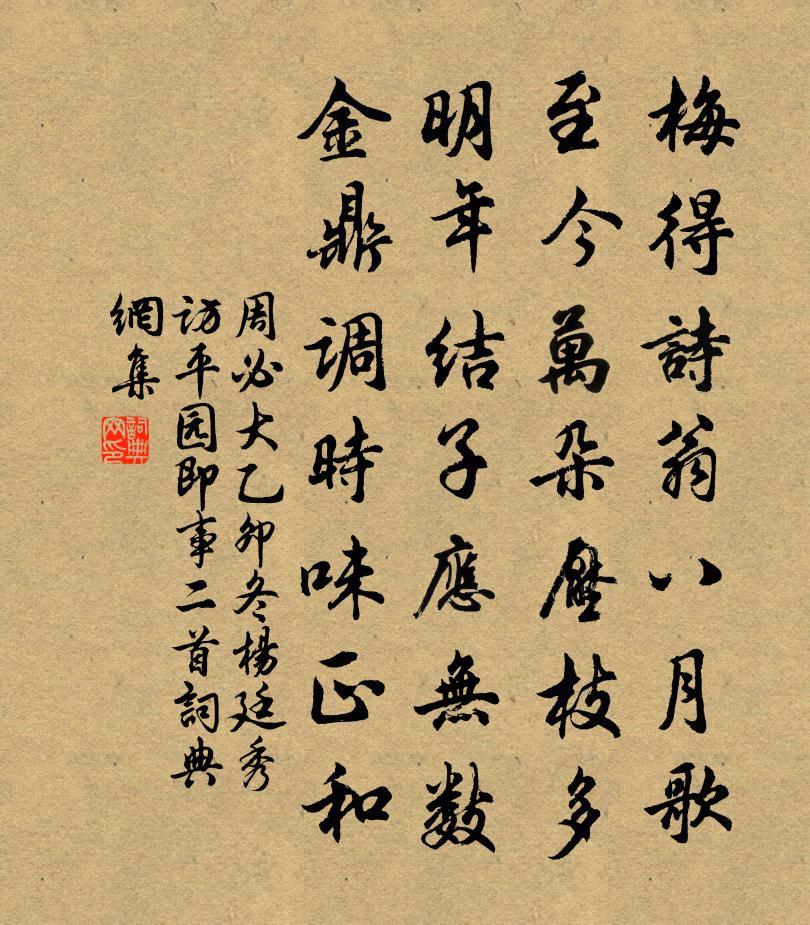 梅得詩翁八月歌
至今萬朵壓枝多
明年結子應無数
金鼎调時味正和
周必大乙卯冬楊廷秀
访平园即事二首詞典
網集
詞典
网印